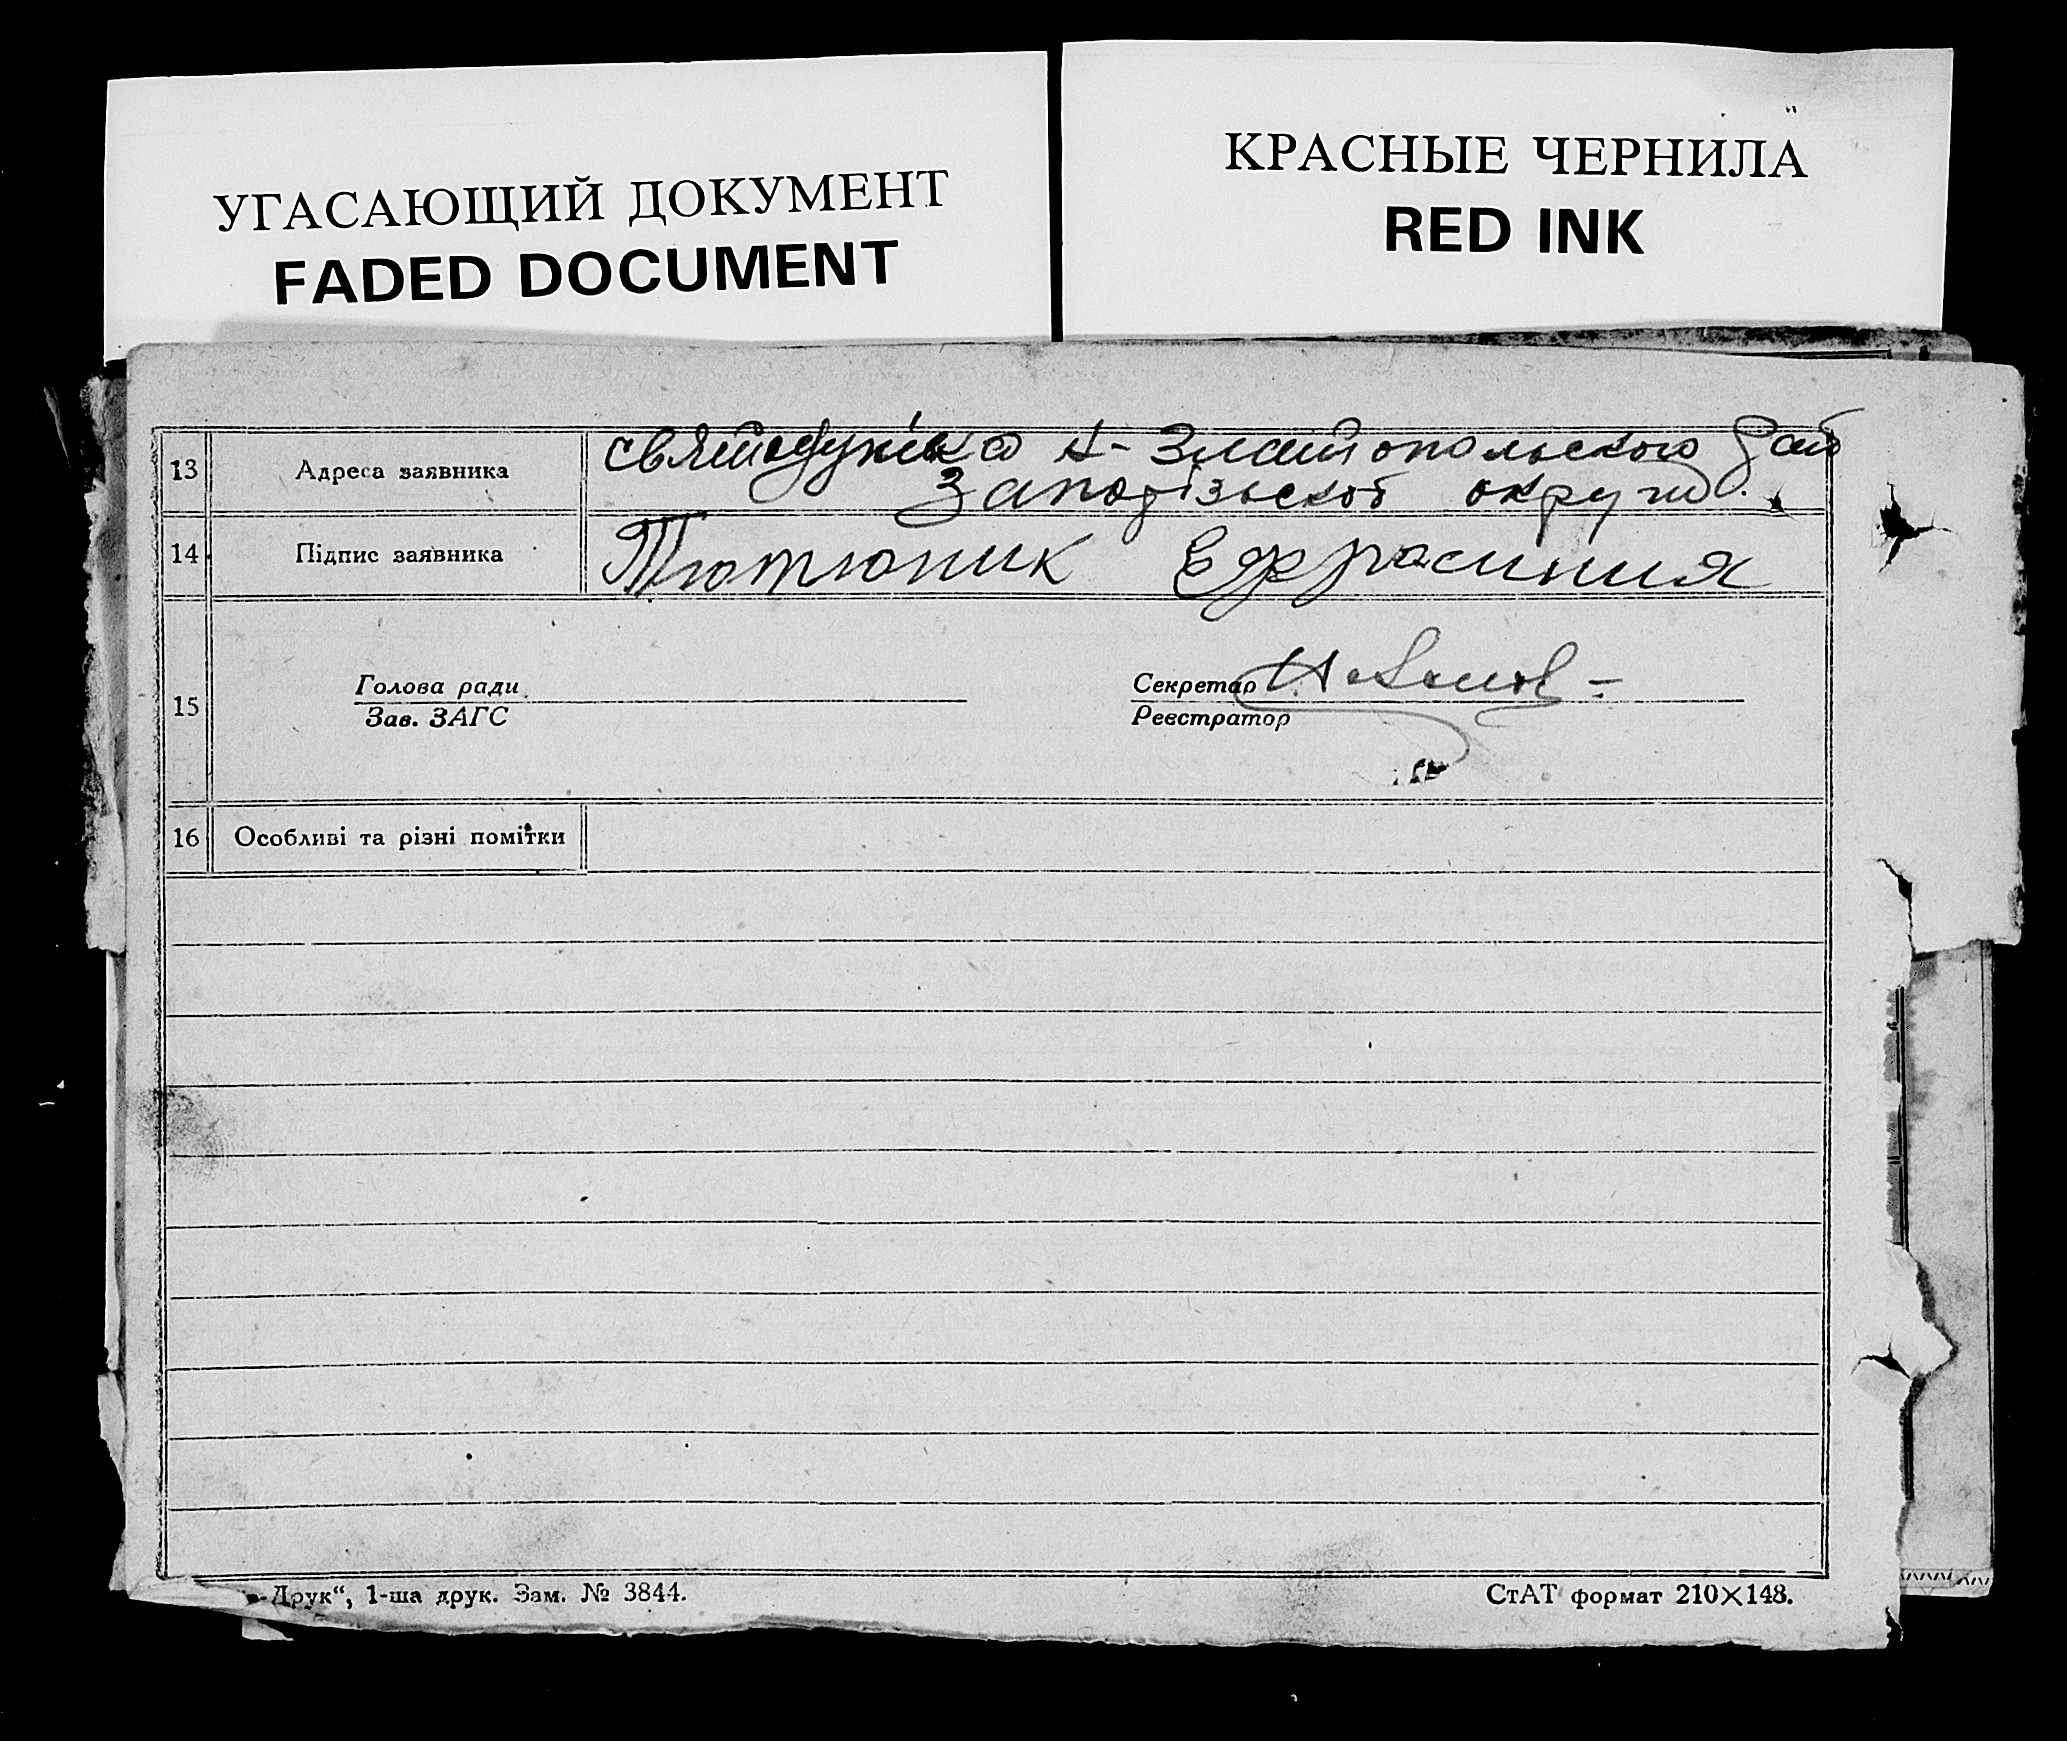 УГАСАЮЩИЙ ДОКУМЕНТ
FADED DOCUMENT
КРАСНЫЕ ЧЕРНИЛА
RED INK
13 Адреса заявника Святодухівка Н-Златопольского рай
Запорізьской округи.
14 Підпис заявника Тютюник Ефросиния
15 Голова ради
Зав. ЗАГС
Секретар
Реєстратор
16 Особливі та різні помітки
-Друк“, 1-ша друк. Зам. № 3844.
СтАТ формат 210×148.